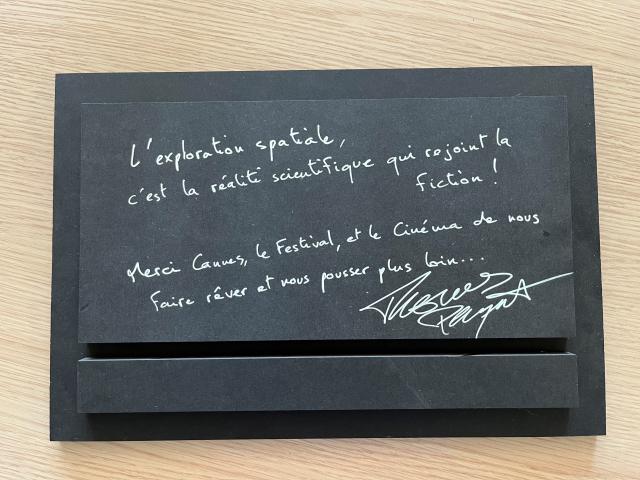 L'exploration spatiale,
c'est la réalité scientifique qui rejoint la
fiction !
Merci Cannes, le Festival, et le Cinéma de nous
faire rêver et nous pousser plus loin...
Thomas
Pesquet